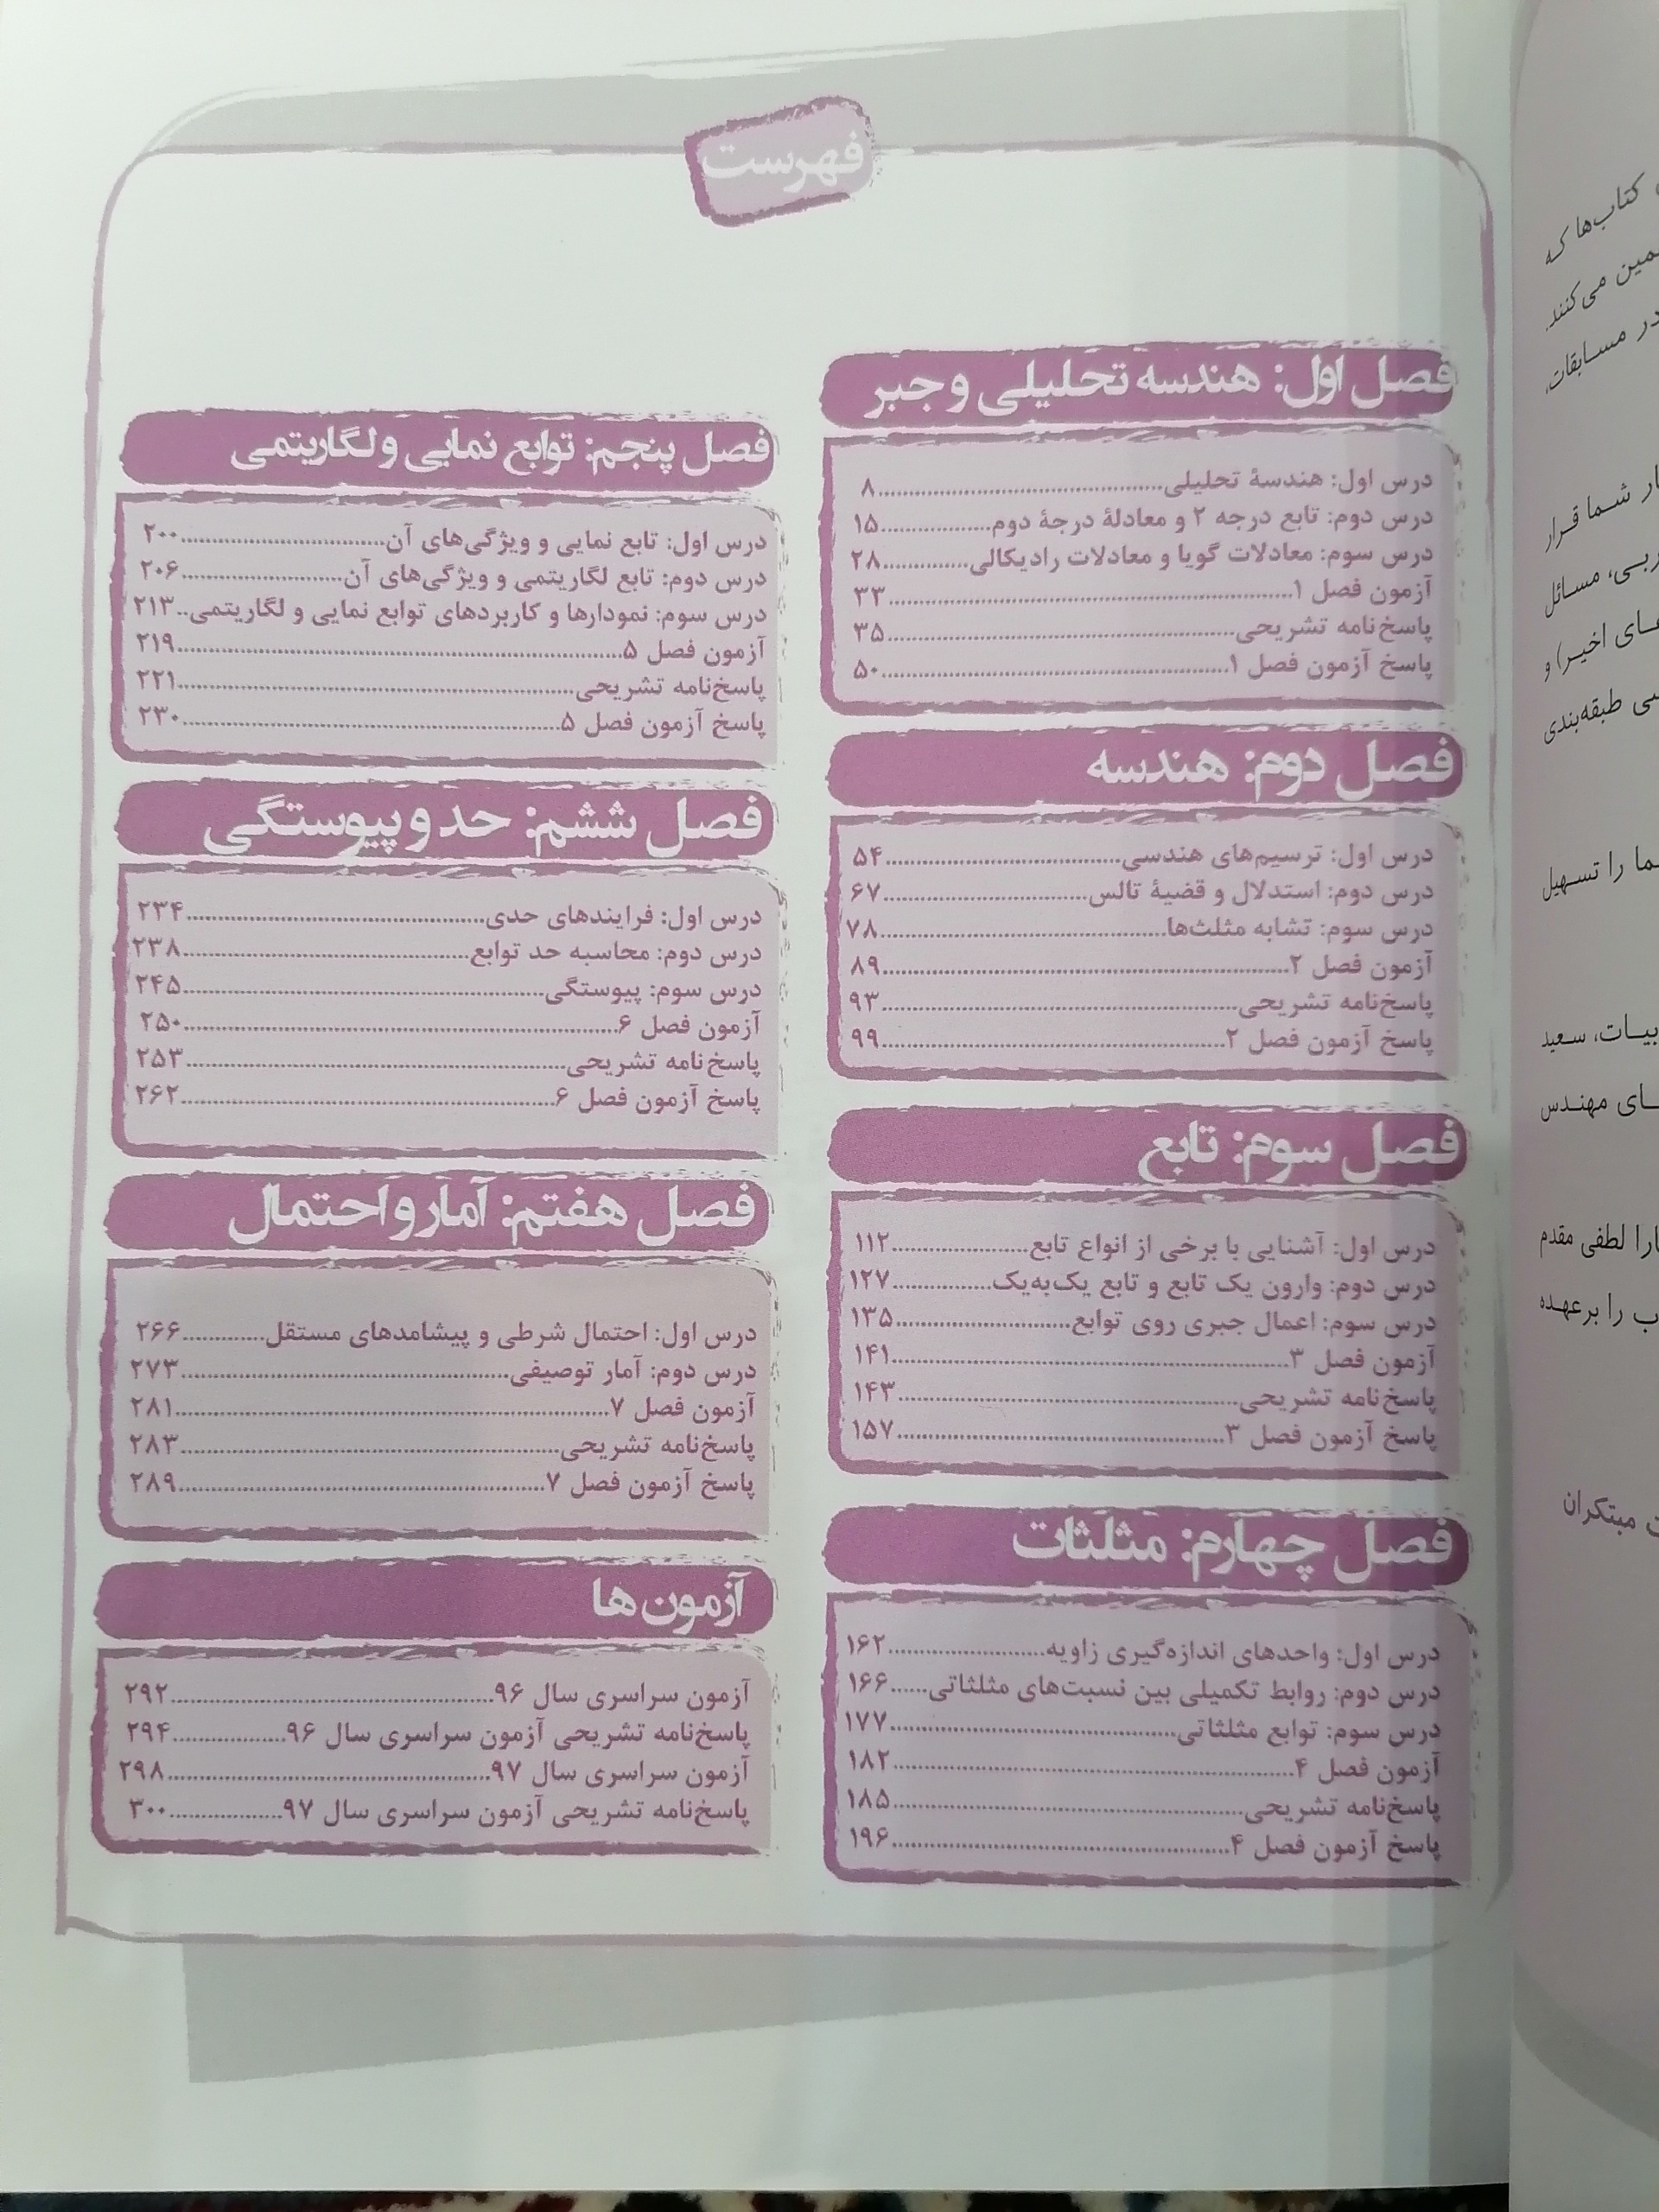 فهرست
فصل اول: هندسه تحلیلی و جبر
درس اول: هندسهٔ تحلیلی ۸
درس دوم: تابع درجه ۲ و معادلهٔ درجهٔ دوم ۱۵
درس سوم: معادلات گویا و معادلات رادیکالی ۲۸
آزمون فصل ۱ ۳۳
پاسخ‌نامه تشریحی ۳۵
پاسخ آزمون فصل ۱ ۵۰
فصل دوم: هندسه
درس اول: ترسیم‌های هندسی ۵۴
درس دوم: استدلال و قضیهٔ تالس ۶۷
درس سوم: تشابه مثلث‌ها ۷۸
آزمون فصل ۲ ۸۹
پاسخ‌نامه تشریحی ۹۳
پاسخ آزمون فصل ۲ ۹۹
فصل سوم: تابع
درس اول: آشنایی با برخی از انواع تابع ۱۱۲
درس دوم: وارون یک تابع و تابع یک‌به‌یک ۱۲۷
درس سوم: اعمال جبری روی توابع ۱۳۵
آزمون فصل ۳ ۱۴۱
پاسخ‌نامه تشریحی ۱۴۳
پاسخ آزمون فصل ۳ ۱۵۷
فصل چهارم: مثلثات
درس اول: واحدهای اندازه‌گیری زاویه ۱۶۲
درس دوم: روابط تکمیلی بین نسبت‌های مثلثاتی ۱۶۶
درس سوم: توابع مثلثاتی ۱۷۷
آزمون فصل ۴ ۱۸۲
پاسخ‌نامه تشریحی ۱۸۵
پاسخ آزمون فصل ۴ ۱۹۶
فصل پنجم: توابع نمایی و لگاریتمی
درس اول: تابع نمایی و ویژگی‌های آن ۲۰۰
درس دوم: تابع لگاریتمی و ویژگی‌های آن ۲۰۶
درس سوم: نمودارها و کاربردهای توابع نمایی و لگاریتمی ۲۱۳
آزمون فصل ۵ ۲۱۹
پاسخ‌نامه تشریحی ۲۲۱
پاسخ آزمون فصل ۵ ۲۳۰
فصل ششم: حد و پیوستگی
درس اول: فرایندهای حدی ۲۳۴
درس دوم: محاسبه حد توابع ۲۳۸
درس سوم: پیوستگی ۲۴۵
آزمون فصل ۶ ۲۵۰
پاسخ‌نامه تشریحی ۲۵۳
پاسخ آزمون فصل ۶ ۲۶۲
فصل هفتم: آمار و احتمال
درس اول: احتمال شرطی و پیشامدهای مستقل ۲۶۶
درس دوم: آمار توصیفی ۲۷۳
آزمون فصل ۷ ۲۸۱
پاسخ‌نامه تشریحی ۲۸۳
پاسخ آزمون فصل ۷ ۲۸۹
آزمون ها
آزمون سراسری سال ۹۶ ۲۹۲
پاسخ‌نامه تشریحی آزمون سراسری سال ۹۶ ۲۹۴
آزمون سراسری سال ۹۷ ۲۹۸
پاسخ‌نامه تشریحی آزمون سراسری سال ۹۷ ۳۰۰
کتاب‌ها که
می‌کنند.
در مسابقات،
شما قرار
مسائل
اخیر) و
طبقه‌بندی
را تسهیل
سعید
مهندس
لطفی مقدم
را برعهده
مبتکران